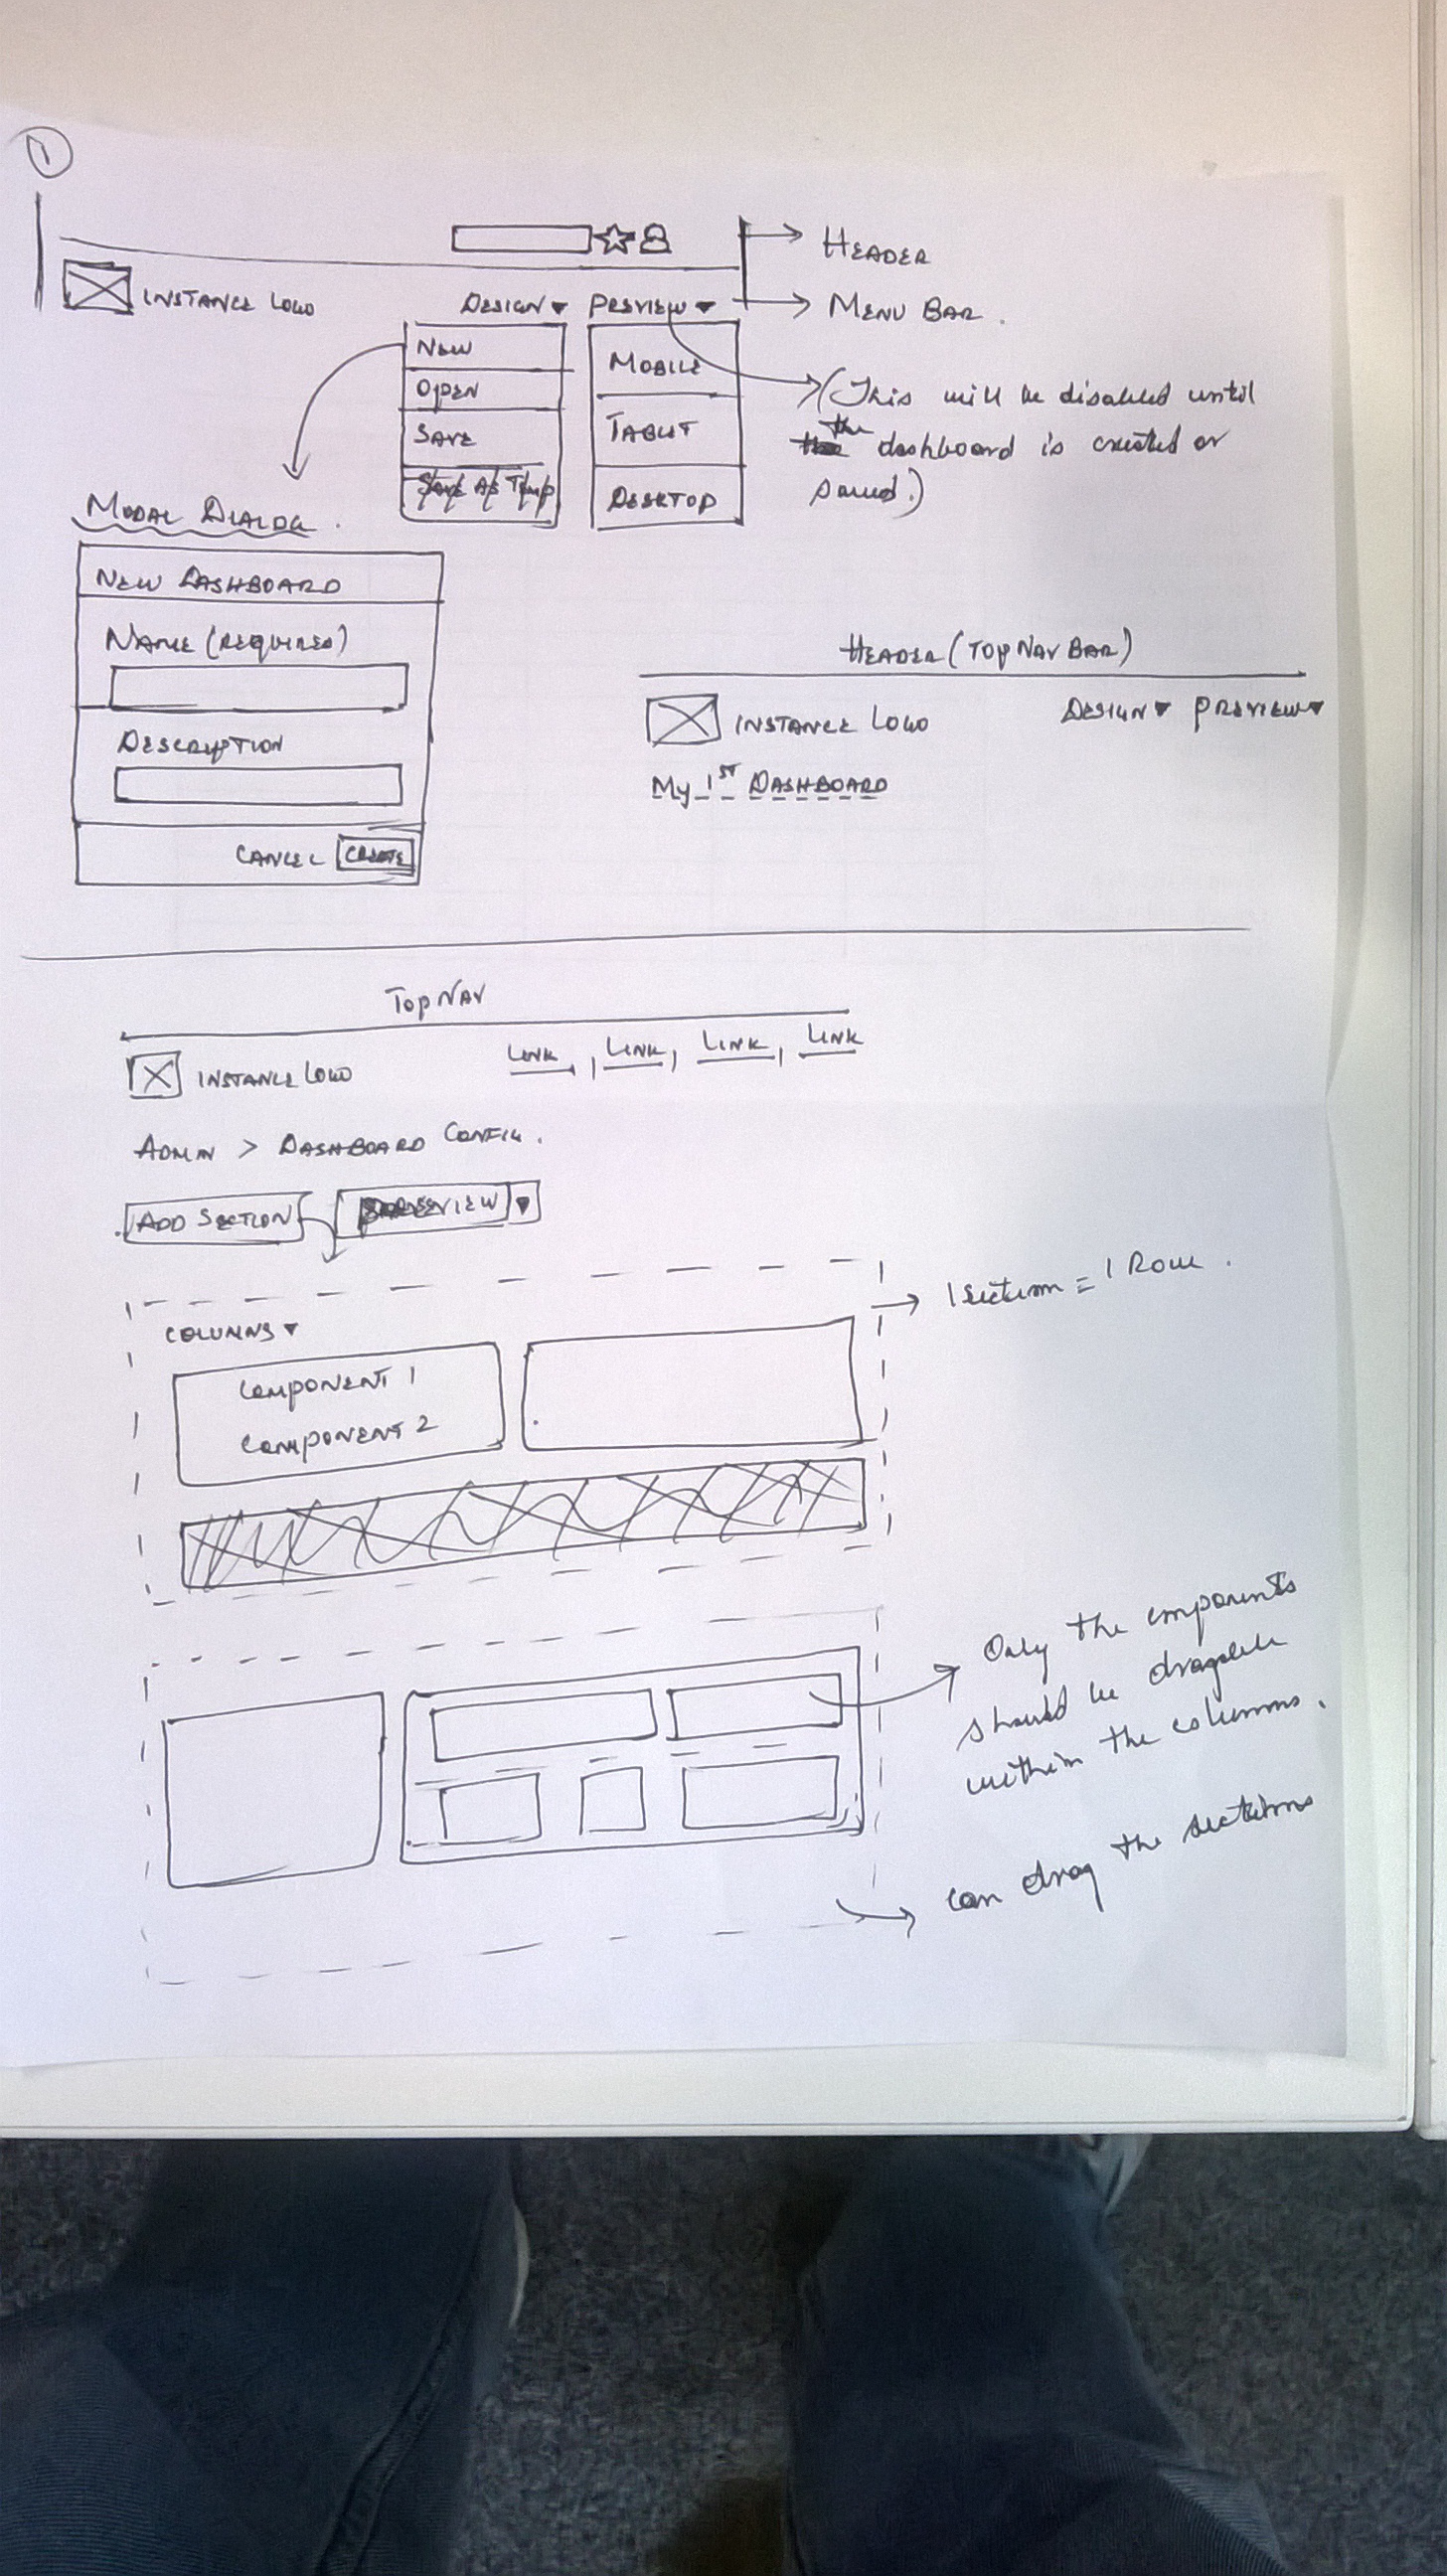 1
HEADER
INSTANCE LOGO
DESIGN ▾ PREVIEW ▾
MENU BAR.
NEW
OPEN
SAVE
SAVE AS TEMP
MOBILE
TABLET
DESKTOP
(This will be disabled until
the dashboard is created or
saved.)
MODAL DIALOG.
NEW DASHBOARD
NAME (REQUIRED)
DESCRIPTION
CANCEL CREATE
HEADER (TOP NAV BAR)
INSTANCE LOGO
DESIGN ▾ PREVIEW ▾
My 1ST DASHBOARD
TOP NAV
INSTANCE LOGO
LINK, LINK, LINK, LINK
ADMIN > DASHBOARD CONFIG.
ADD SECTION
PREVIEW ▾
1 section = 1 Row.
COLUMNS ▾
COMPONENT 1
COMPONENT 2
Only the components
should be dragable
within the columns.
can drag the sections